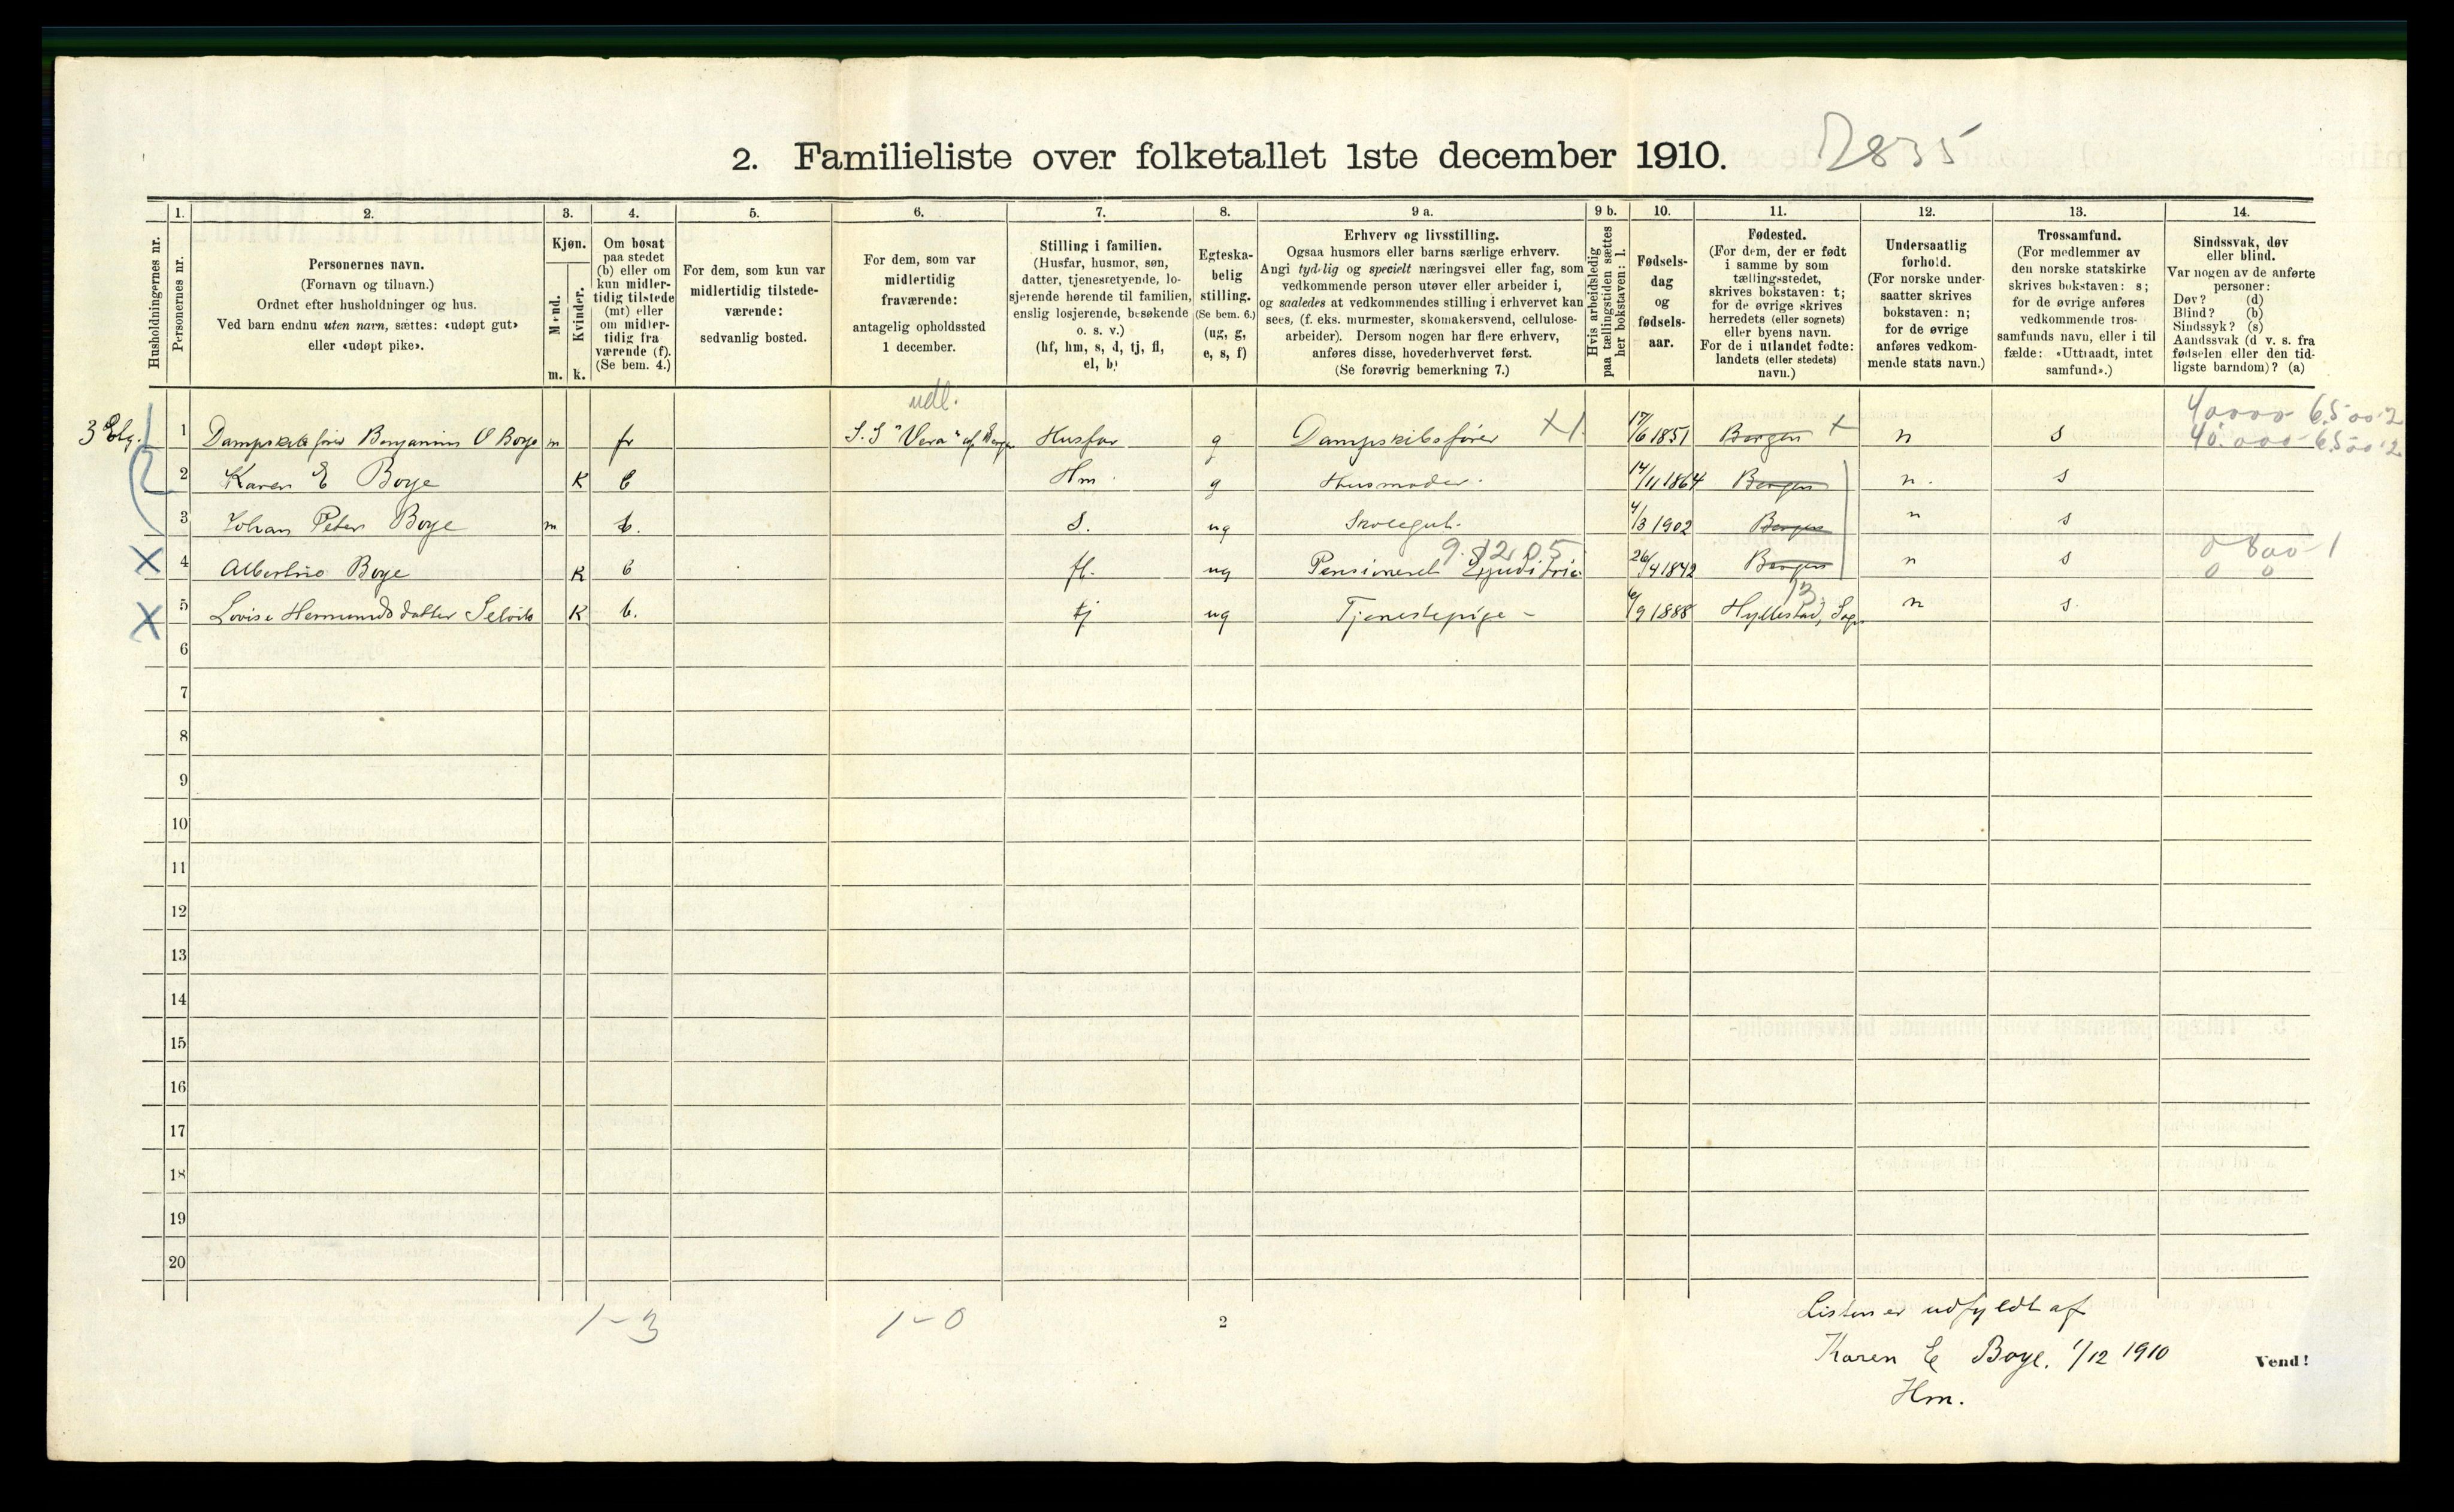 2. Familieliste over folketallet 1ste december 1910. 2835
Husholdningernes nr.
1. Personernes nr.
2. Personernes navn.
(Fornavn og tilnavn.)
Ordnet efter husholdninger og hus.
Ved barn endnu uten navn, sættes: «udøpt gut»
eller «udøpt pike».
3. Kjøn.
Mænd. m.
Kvinder. k.
4. Om bosat
paa stedet
(b) eller om
kun midler-
tidig tilstede
(mt) eller
om midler-
tidig fra
værende (f).
(Se bem. 4.)
5. For dem, som kun var
midlertidig tilstede-
værende:
sedvanlig bosted.
6. For dem, som var
midlertidig
fraværende:
antagelig opholdssted
1 december.
7. Stilling i familien.
(Husfar, husmor, søn,
datter, tjenestyende, lo-
sjerende hørende til familien,
enslig losjerende, besøkende
o. s. v.)
(hf, hm, s, d, tj, fl,
el, b)
8. Egteska-
belig
stilling.
(Se bem. 6.)
(ug, g,
e, s, f)
9 a. Erhverv og livsstilling.
Ogsaa husmors eller barns særlige erhverv.
Angi tydelig og specielt næringsvei eller fag, som
vedkommende person utøver eller arbeider i,
og saaledes at vedkommendes stilling i erhvervet kan
sees, (f. eks. murmester, skomakersvend, cellulose-
arbeider). Dersom nogen har flere erhverv,
anføres disse, hovederhvervet først.
(Se forøvrig bemerkning 7.)
9 b. Hvis arbeidsledig
paa tællingstiden sættes
her bokstaven: l.
10. Fødsels-
dag
og
fødsels-
aar.
11. Fødested.
(For dem, der er født
i samme by som
tællingsstedet,
skrives bokstaven: t;
for de øvrige skrives
herredets (eller sognets)
eller byens navn.
For de i utlandet fødte:
landets (eller stedets)
navn.)
12. Undersaatlig
forhold.
(For norske under-
saatter skrives
bokstaven: n;
for de øvrige
anføres vedkom-
mende stats navn.)
13. Trossamfund.
(For medlemmer av
den norske statskirke
skrives bokstaven: s;
for de øvrige anføres
vedkommende tros-
samfunds navn, eller i til
fælde: «Uttraadt, intet
samfund».)
14. Sindssvak, døv
eller blind.
Var nogen av de anførte
personer:
Døv? (d)
Blind? (b)
Sindssyk? (s)
Aandssvak (d v. s. fra
fødselen eller den tid-
ligste barndom)? (a)
udl. 40000 6500 2
3 Etg. 1 Dampskibsfører Benjamin O Boye m fr S. S "Vera" af Bergen Husfar g Dampskibsfører X1 17/6 1851 Bergen + n s 40.000 6500 2
2 Karen E Boye K b Hm. g Husmoder. 14/11 1864 Bergen n. s
3 Johan Peter Boye m b. S. ug Skolegut. 4/3 1902 Bergen n s
9. 12. 05 0 800 1
X 4 Albertine Boye K b fl. ug Pensioneret 26/4 1842 Bergen n s 0 0
13.
X 5 Lovise Hermundsdatter Selvik K b. tj ug Tjenestepige - 6/9 1888 Hyllestad, Sogn n s.
6
7
8
9
10
11
12
13
14
15
16
17
18
19
20
1-3 1-0 2
Listen er udfyldt af
Karen E Boye. 1/12 1910
Hm.
Vend!